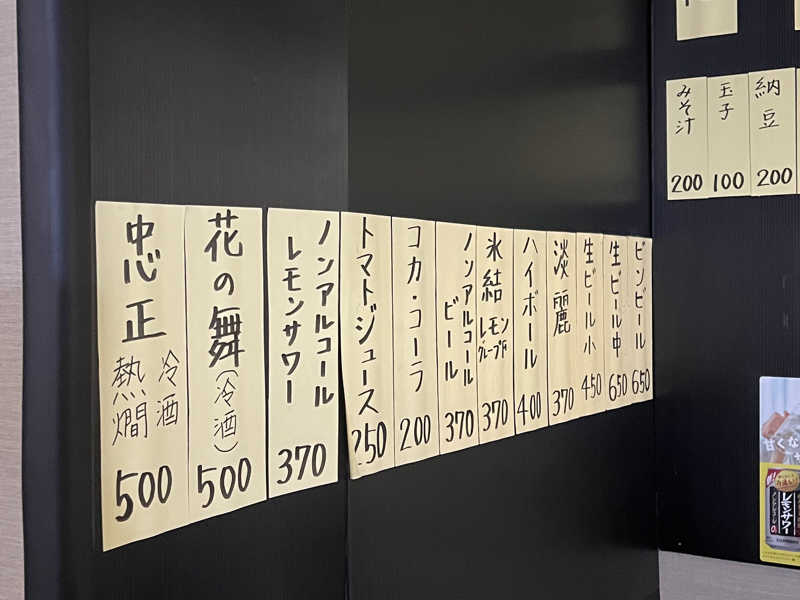 みそ汁
200
玉子
100
納豆
200
ビンビール
650
生ビール中
650
生ビール小
450
淡麗
370
ハイボール
400
氷結 レモン
グレープF
370
ノンアルコール
ビール
370
コカ・コーラ
200
トマトジュース
250
ノンアルコール
レモンサワー
370
花の舞(冷酒)
500
忠正
冷酒
熱燗
500
甘くな
レモンサワー